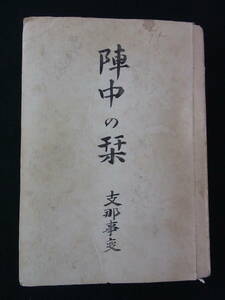 陣中の栞
支那事変